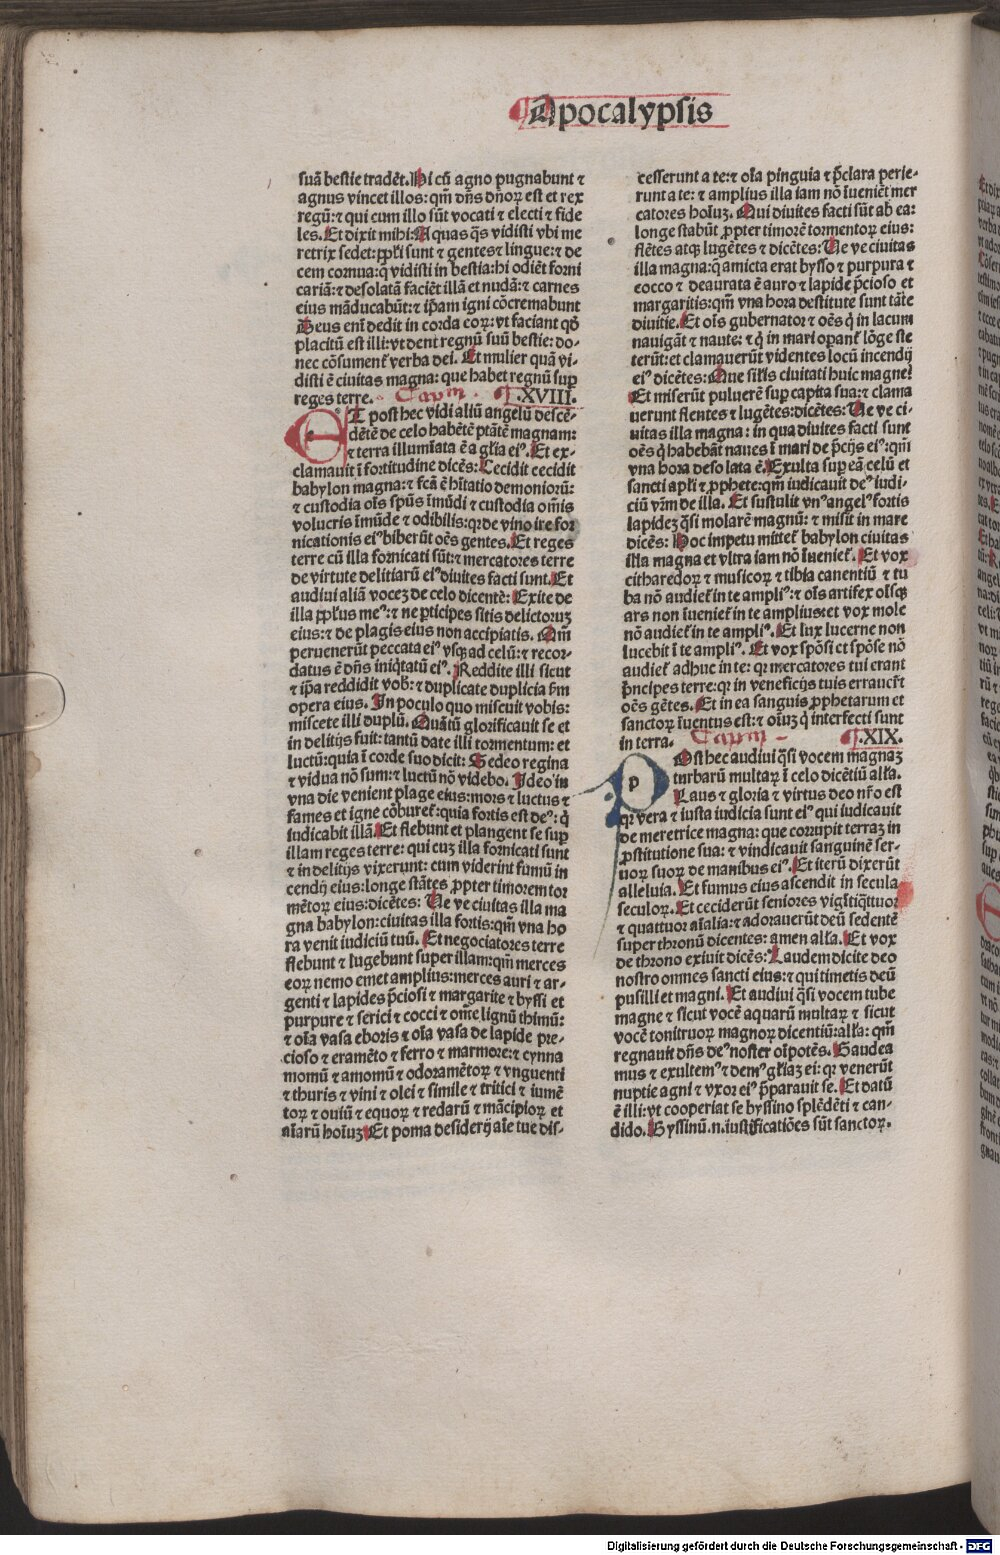 Apocalypsis
suā bestie tradēt. Hi cū agno pugnabunt ⁊
agnus vincet illos: qm̄ dn̄s dn̄oꝝ est et rex
regū: ⁊ qui cum illo sūt vocati ⁊ electi ⁊ fide
les. Et dixit mihi: Aquas q̄s vidisti vbi me
retrix sedet: ppl̄i sunt ⁊ gentes ⁊ lingue: ⁊ de
cem cornua: q̄ vidisti in bestia: hi odiēt forni
cariā: ⁊ desolatā faciēt illā et nudā: ⁊ carnes
eius māducabūt: ⁊ ip̄am igni cōcremabunt
Deus eni dedit in corda eoꝝ: vt faciant qd̄
placitū est illi: vt dent regnū suū bestie: do-
nec cōsument verba dei. Et mulier quā vi-
disti ē ciuitas magna: que habet regnū sup
reges terre. Capm. XVIII.
ET post hec vidi aliū angelū descē-
dētē de celo habētē ptātē magnam:
⁊ terra illumīata ē a gl̄ia eiꝰ. Et ex-
clamauit ī fortitudine dicēs: Cecidit cecidit
babylon magna: ⁊ fcā ē hītatio demonioꝝ:
⁊ custodia ois̄ spūs īmūdi ⁊ custodia om̄is
volucris īmūde ⁊ odibilis: qꝛ de vino ire for
nicationis eiꝰ biberūt oēs gentes. Et reges
terre cū illa fornicati sūt: ⁊ mercatores terre
de virtute delitiarū eiꝰ diuites facti sunt. Et
audiui aliā vocez de celo dicentē: Exite de
illa ppl̄us meꝰ: ⁊ ne ꝑticipes sitis delictoꝝ
eius: ⁊ de plagis eius non accipiatis. Qm̄
peruenerūt peccata eiꝰ vsqꝫ ad celū: ⁊ recor-
datus ē dn̄s iniqtatū eiꝰ. Reddite illi sicut
⁊ ip̄a reddidit vob̄: ⁊ duplicate duplicia s̄m
opera eius. In poculo quo miscuit vobis:
miscete illi duplū. Quātū glorificauit se et
in delitijs fuit: tantū date illi tormentum: et
luctū: quia ī corde suo dicit: Sedeo regina
⁊ vidua nō sum: ⁊ luctū nō videbo. Ideo in
vna die venient plage eius: mors ⁊ luctus ⁊
fames et igne cōburet: quia fortis est deꝰ: q̄
iudicabit illā. Et flebunt et plangent se sup
illam reges terre: qui cuz illa fornicati sunt
⁊ in delitijs vixerunt: cum viderint fumū in
cendij eius: longe stātes ꝓpter timorem tor
mētoꝝ eius: dicētes: Ue ve ciuitas illa ma
gna babylon: ciuitas illa fortis: qm̄ vna ho
ra venit iudiciū tuū. Et negociatores terre
flebunt ⁊ lugebunt super illam: qm̄ merces
eoꝝ nemo emet amplius: merces auri ⁊ ar-
genti ⁊ lapides p̄ciosi ⁊ margarite ⁊ byssi et
purpure ⁊ serici ⁊ cocci ⁊ om̄e lignū thimū:
⁊ oīa vasa eboris ⁊ oīa vasa de lapide pre-
cioso ⁊ eramēto ⁊ ferro ⁊ marmore: ⁊ cynna
momū ⁊ amomū ⁊ odoramētoꝝ ⁊ vnguenti
⁊ thuris ⁊ vini ⁊ olei ⁊ simile ⁊ tritici ⁊ iumē
toꝝ ⁊ ouiū ⁊ equoꝝ ⁊ redarū ⁊ mācipioꝝ et
aīarū hoīuꝫ. Et poma desiderij aīe tue dis-
cesserunt a te: ⁊ oīa pinguia ⁊ p̄clara perie-
runt a te: ⁊ amplius illa iam nō īueniēt mer
catores hoīuꝫ. Qui diuites facti sūt ab ea:
longe stabūt ꝓpter timorē tormentoꝝ eius:
flētes atqꝫ lugētes ⁊ dicētes: Ue ve ciuitas
illa magna: q̄ amicta erat bysso ⁊ purpura ⁊
cocco ⁊ deaurata ē auro ⁊ lapide p̄cioso et
margaritis: qm̄ vna hora destitute sunt tāte
diuitie. Et ois̄ gubernator ⁊ oēs q̄ in lacum
nauigāt ⁊ naute: ⁊ q̄ in mari opant lōge ste
terūt: et clamauerūt videntes locū incendij
eiꝰ dicētes: Que sil̄is ciuitati huic magne?
Et miserūt puluerē sup capita sua: ⁊ clama
uerunt flentes ⁊ lugētes: dicētes: Ue ve ci-
uitas illa magna: in qua diuites facti sunt
oēs q̄ habebāt naues ī mari de p̄cijs eiꝰ: qm̄
vna hora desolata ē. Exulta sup eā celū et
sancti apl̄i ⁊ ꝓphete: qm̄ iudicauit deꝰ iudi-
ciū vr̄m de illa. Et sustulit vnꝰ angelꝰ fortis
lapidez q̄si molarē magnū: ⁊ misit in mare
dicēs: Hoc impetu mittet babylon ciuitas
illa magna et vltra iam nō īueniet. Et vox
citharedoꝝ ⁊ musicoꝝ ⁊ tibia canentiū ⁊ tu
ba nō audiet in te ampliꝰ: ⁊ ois̄ artifex ois̄qꝫ
ars non īueniet in te amplius: et vox mole
nō audiet in te ampliꝰ. Et lux lucerne non
lucebit ī te ampliꝰ. Et vox spōsi et spōse nō
audiet adhuc in te: qꝛ mercatores tui erant
p̄ncipes terre: qꝛ in veneficijs tuis erraueft
oēs gētes. Et in ea sanguis ꝓphetarum et
sanctoꝝ īuentus est: ⁊ oīuꝫ q̄ interfecti sunt
in terra. Capm. XIX.
POst hec audiui q̄si vocem magnaꝫ
turbarū multaꝝ ī celo dicētiū all̄a.
Laus ⁊ gloria ⁊ virtus deo nr̄o est
qꝛ vera ⁊ iusta iudicia sunt eiꝰ qui iudicauit
de meretrice magna: que corrupit terraꝫ in
ꝓstitutione sua: ⁊ vindicauit sanguinē ser-
uoꝝ suoꝝ de manibus eiꝰ. Et iterū dixerūt
alleluia. Et fumus eius ascendit in secula
seculoꝝ. Et ceciderūt seniores viginti q̄ttuor
⁊ quattuor aīalia: ⁊ adorauerūt deū sedentē
super thronū dicentes: amen all̄a. Et vox
de throno exiuit dicēs: Laudem dicite deo
nostro omnes sancti eius: ⁊ qui timetis deū
pusilli et magni. Et audiui q̄si vocem tube
magne ⁊ sicut vocē aquarū multaꝝ ⁊ sicut
vocē tonitruoꝝ magnoꝝ dicentiū: all̄a: qm̄
regnauit dn̄s deꝰ noster oīpotēs. Gaudea
mus ⁊ exultemꝰ ⁊ demꝰ gl̄iaꝫ ei: qꝛ venerūt
nuptie agni ⁊ vxor eiꝰ p̄parauit se. Et datū
ē illi: vt cooperiat se byssino splēdēti ⁊ can-
dido. Byssinū .n. iustificatiōes sūt sanctoꝝ.
Digitalisierung gefördert durch die Deutsche Forschungsgemeinschaft - DFG